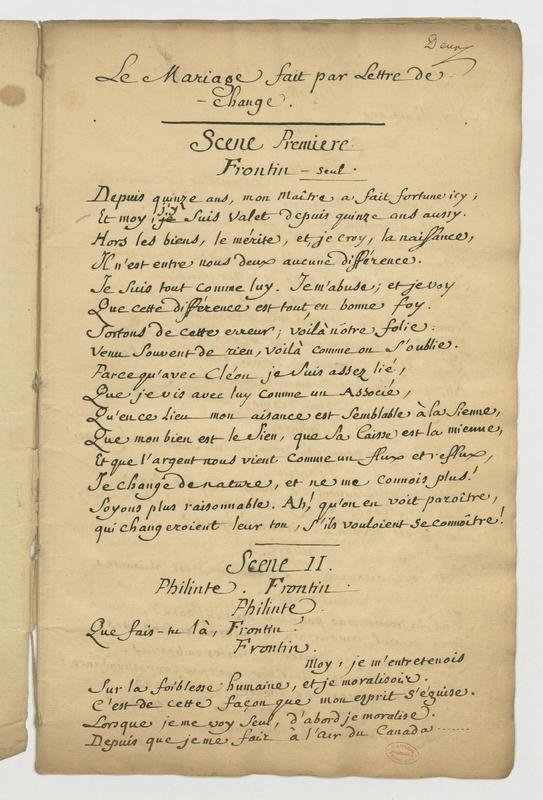 Deux
Le Mariage fait par Lettre de
- Change.
Scene Premiere
Frontin - seul.
Depuis quinze ans, mon Maître a fait fortune icy;
Et moy, j'y suis Valet depuis quinze ans aussy.
Hors les biens, le mérite, et, je croy, la naissance,
Il n'est entre nous deux aucune différence.
Je suis tout comme luy. Je m'abuse; et je voy
Que cette différence est tout, en bonne foy.
Sortons de cette erreur; voilà nôtre folie:
Venu Souvent de rien, voilà comme on S'oublie.
Parce qu'avec Cléon je suis assez lié,
Que je vis avec luy comme un Associé,
Qu'en ce Lieu mon aisance est semblable à la Sienne,
Que mon bien est le Sien, que Sa Caisse est la mienne,
Et que l'argent nous vient comme un flux et reflux,
Je change de nature, et ne me connois plus!
Soyons plus raisonnable. Ah! qu'on en voit paroître,
qui changeroient leur ton, s'ils vouloient se connoître!
Scene II.
Philinte. Frontin.
Philinte.
Que fais-tu là, Frontin?
Frontin.
Moy, je m'entretenois
Sur la foiblesse humaine, et je moralisois.
C'est de cette façon que mon esprit S'éguise.
Lorsque je me voy Seul, d'abord je moralise.
Depuis que je me fais à l'air du Canada .......